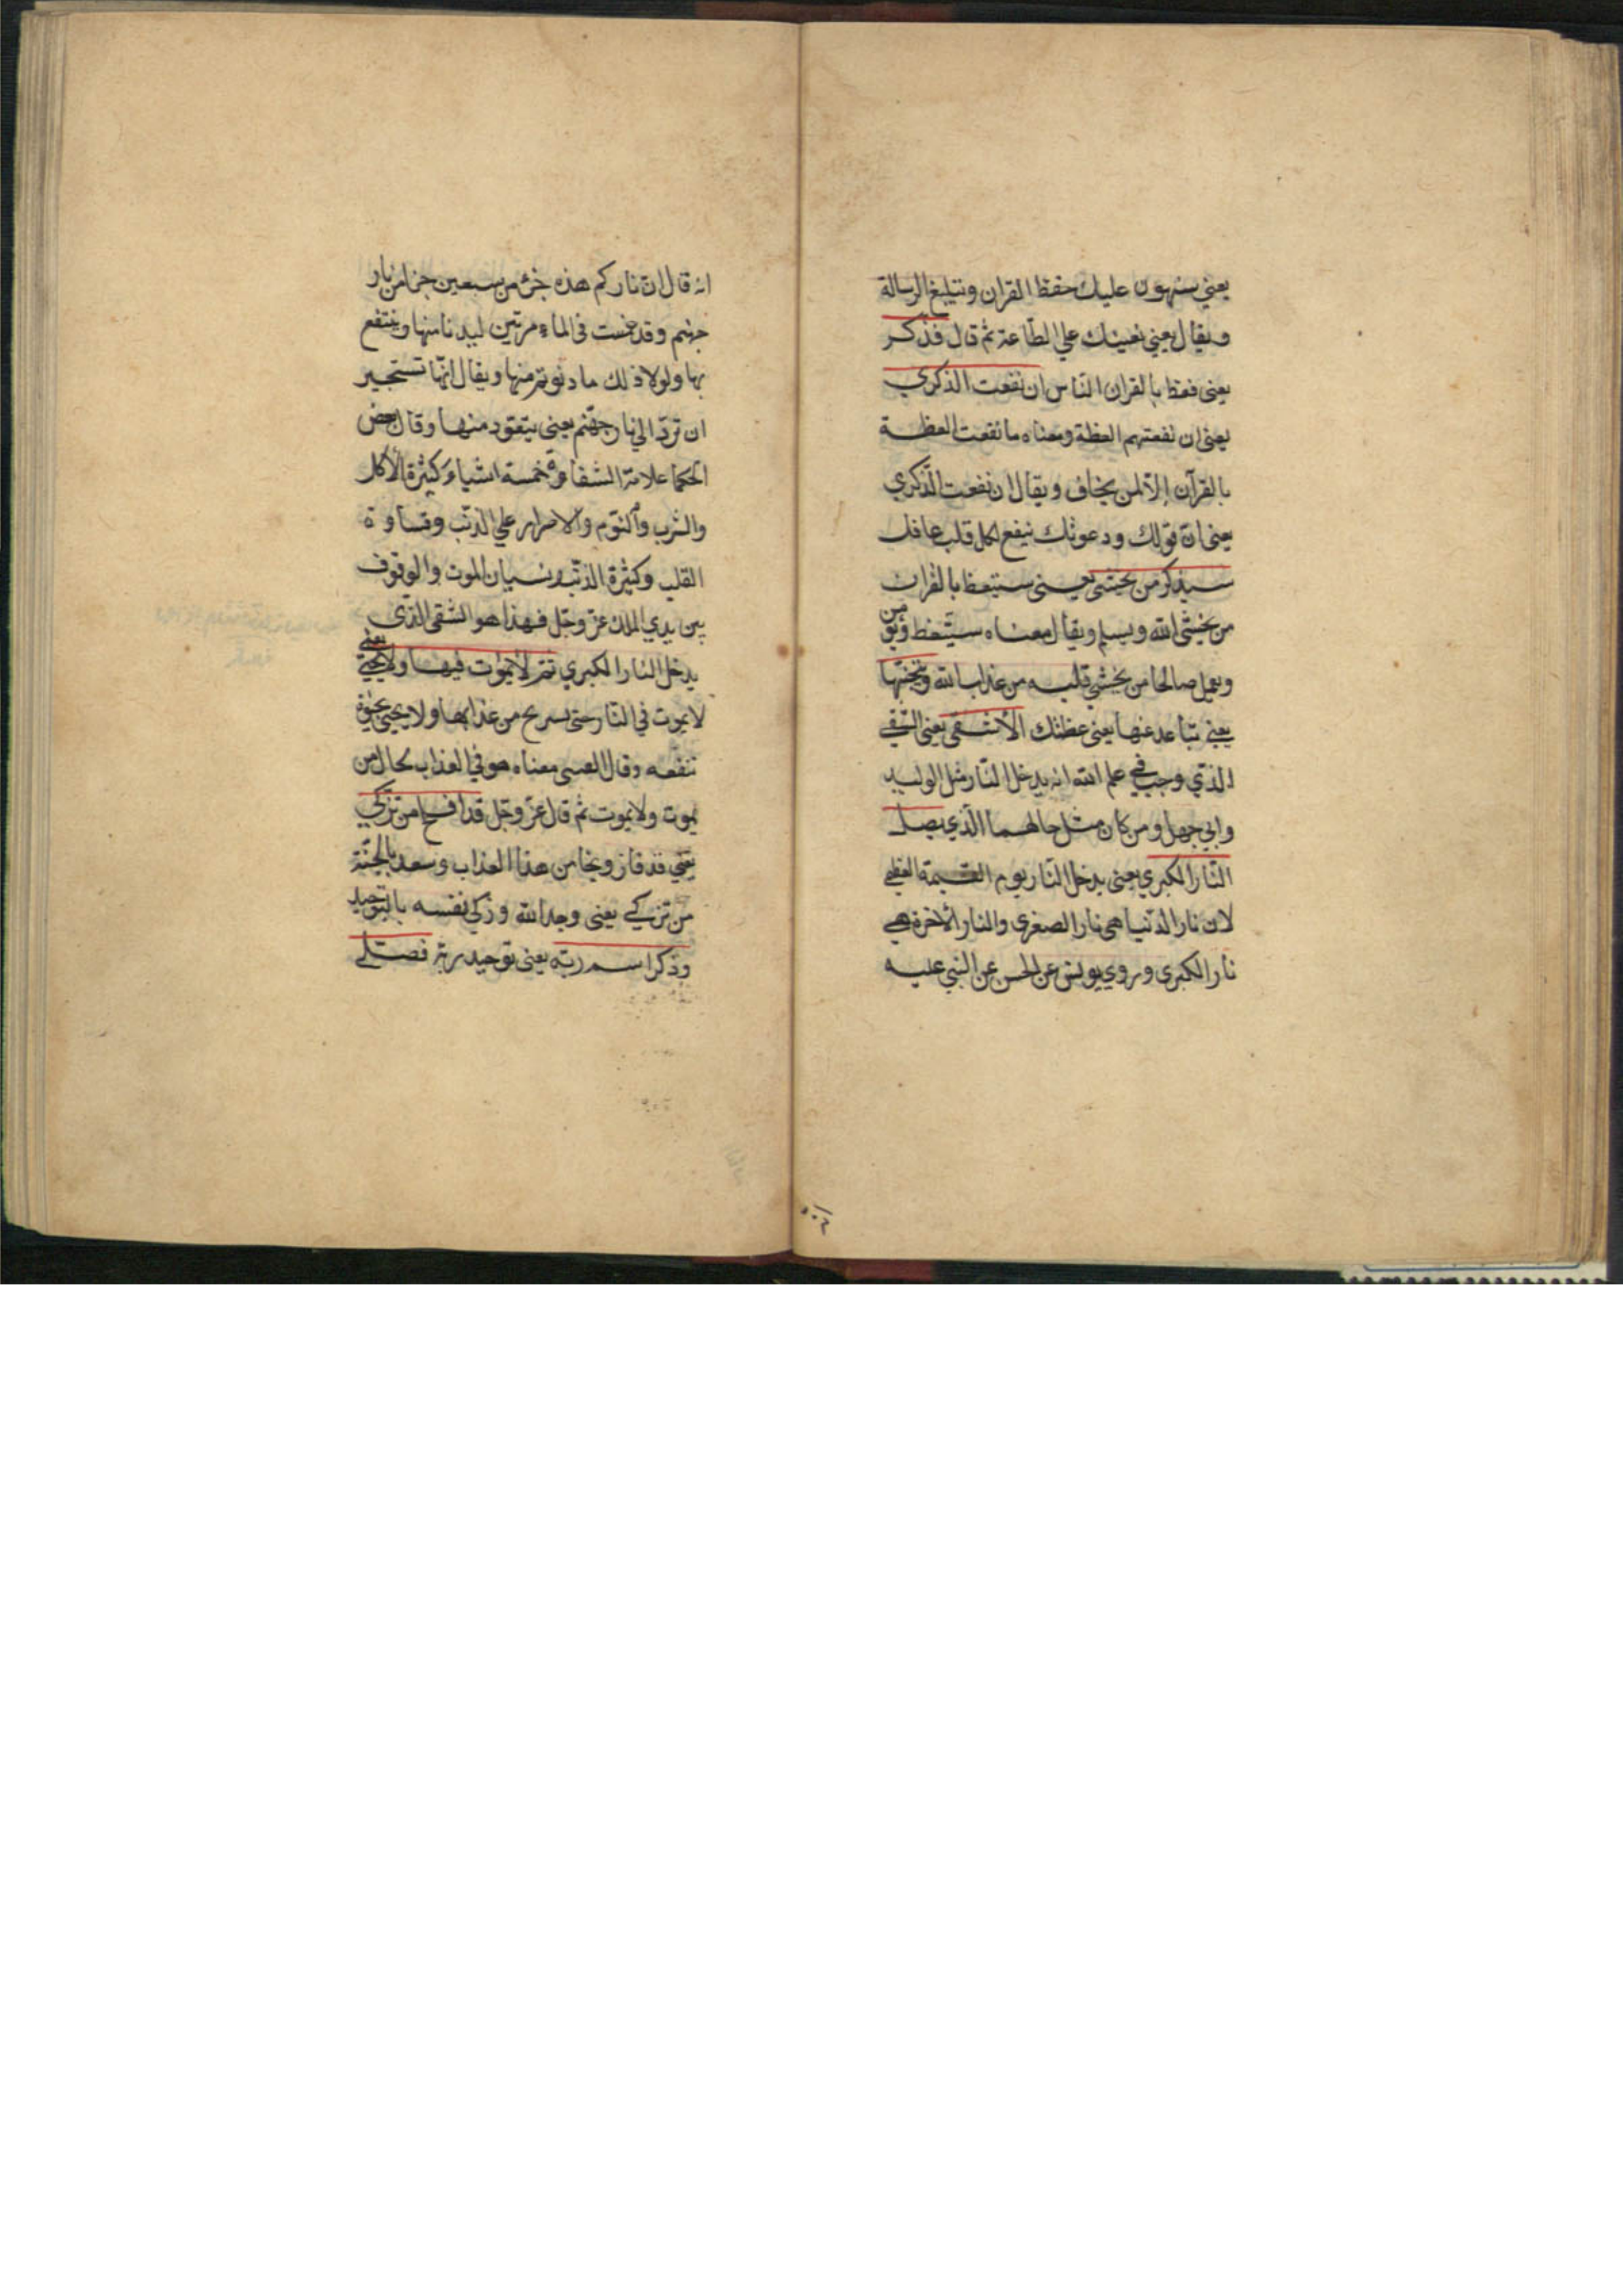 يعني سنهون عليك حفظ القران وتبليغ الرسالة
ويقال يعني نعينك علي الطّاعة ثم قال فذكر
يعني فعظ بالقران النّاس ان نفعت الذكري
يعني ان نفعتهم العظة ومعناه ما نفعت العظة
بالقرآن إلاّ لمن يخاف ويقال ان نفعت الذّكري
يعني انّ قولك ودعوتك ينفع لكل قلب عاقل
سيذكر من يخشى يعني ستيعظ بالقران
من يخشى الله ويسلم ويقال معناه ستيعظ ويؤمن
ويعمل صالحا من يخشي قلبه من عذاب الله ويتجنبها
يعني يتباعد عنها يعني عظتك الأشقى يعني الشقي
الذّي وجب في علم الله انه يدخل النّار مثل الوليد
وابي جهل ومن كان مثل حالهما الّذي يصل
النّار الكبري يعني يدخل النّار يوم القيمة العظمي
لان نار الدّنيا هي نار الصغرى والنار الأخرة هي
نار الكبرى وروي يونس عن الحسن عن النبي عليه
انه قال انّ ناركم هذه جزء من سبعين جزا من نار
جهنم وقد غمست في الماء مرتين ليدنا منها وينتفع
بها ولولا ذلك ما دنوتم منها ويقال انّها تستجير
ان تردّ الي نار جهّنم يعني يتعوذ منها وقال بعض
الحكما علامة الشقاوة خمسة اشياء كثرة الأكل
والشرب والنّوم والاصرار علي الذّنب وقساوة
القلب وكثرة الذّنب ونسيان الموت والوقوف
بين يدي الملك عزّ وجّل فهذا هو الشقى الذّي
يدخل النار الكبري ثم لا يموت فيها ولا يحيي يعني
لا يموت في النّار حتى يسريح من عذابها ولا يحيي بحيوة
تنفعه وقال معناه هو في العذاب بحال من
يموت ولا يموت ثم قال عزّ وجّل قد افلح من تزكي
يعني قد فاز ونجا من هذا العذاب وسعد بالجنّة
من تزكي يعني وحد الله وزكي نفسه بالتوحيد
وذكر اسم ربّه يعني توحيد ربّه فصلي